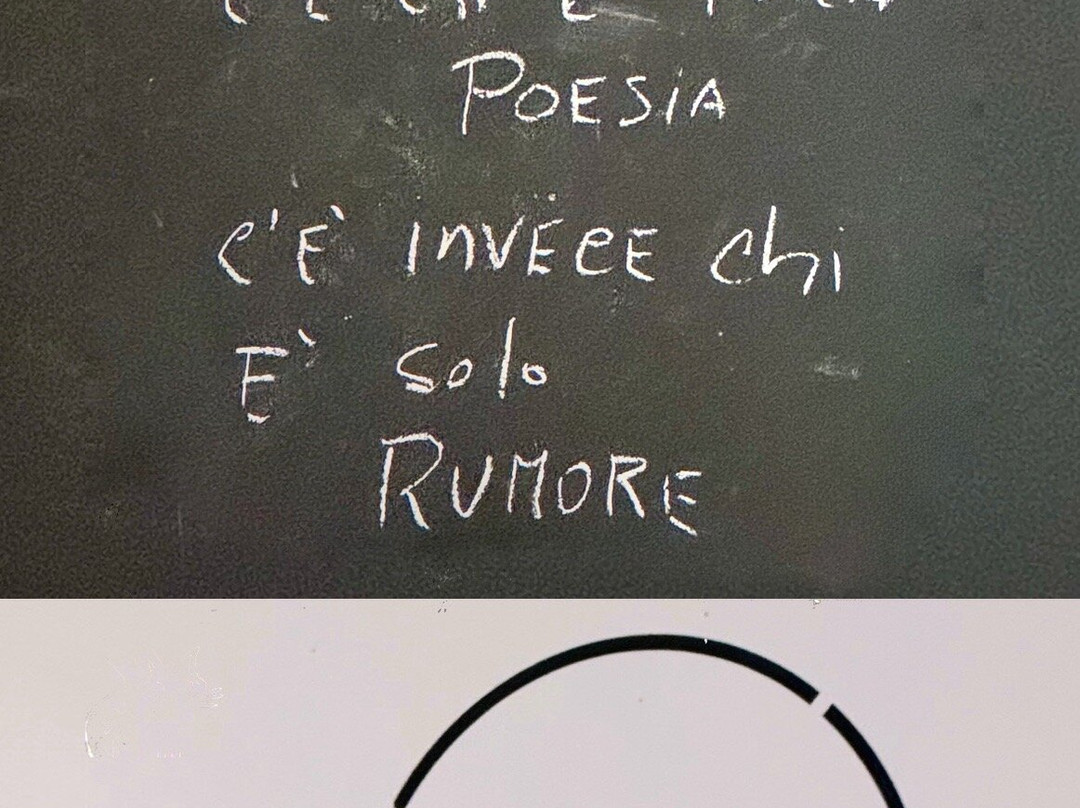 POESIA
C'E' INVECE chi
E' solo
RUMORE